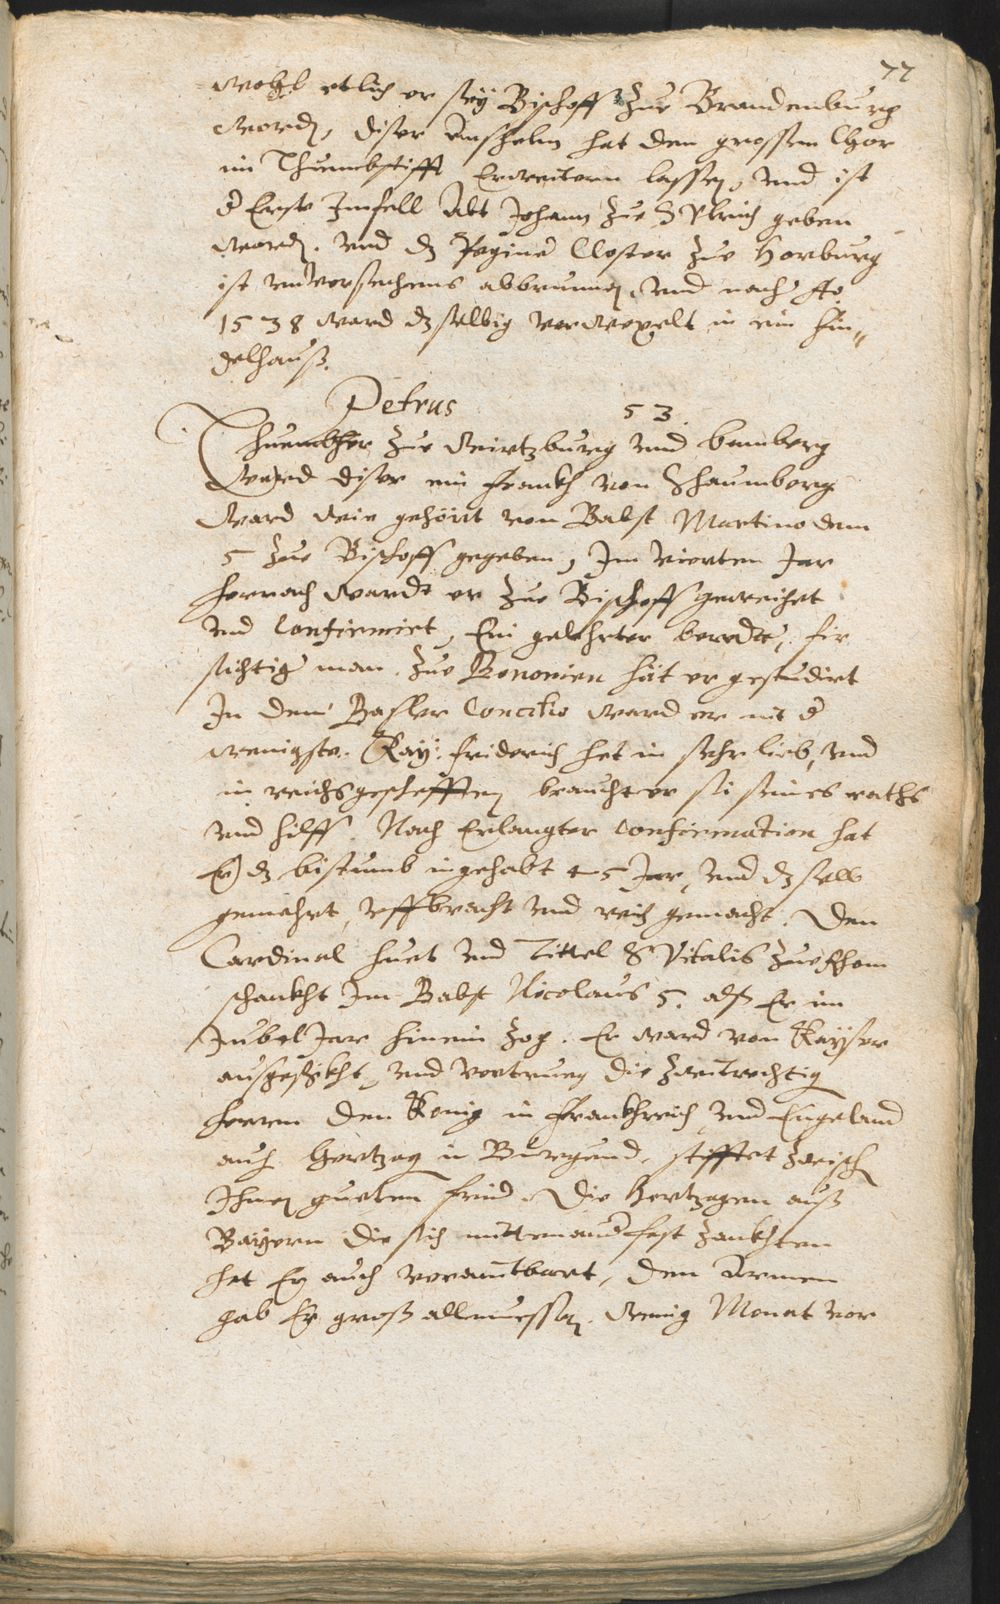 77
wohl etlich er sey Bischoff zue Brandenburg
word, diser Anshelm hat den grossen Chor
im Thuembstifft Erweitern lassen, und ist
d Erste Infell Abt Johann zue S Ulrich geben
word. und dz Closter zue Horburg
ist unversechens abbrunnen, und nach Ao
1538 ward dz selbig verwexelt in ein fin„
delhauß.
Petrus 53.
Thuembher zue Wirtzburg und bamberg
Ward diser ein frankh von Schaumberg
Ward wie gehört von Babst Martino dem
5 zue Bischoff gegeben, Im vierten Jar
hernach wardt er zue Bischoff geweichet
und Confirmirt, Ein gelehrter beredte, fir
sichtig man. zue Bononien hat er gestudirt
In dem Basler Concilio ward er nit d
wenigste. Kay: friderich het in sehr lieb, und
in reichsgeschefften braucht er sich seines raths
und hilff. Nach Erlangter Confirmation hat
Er dz bistumb ingehabt 45 Jar, und dz selb
gemehrt, uffbracht und reich gemacht. Den
Cardinal huet und Tittel S Vitalis zue Rhom
schankht Im Babst Nicolaus 5. alß Er im
Jubel Jar hinein zog. Er ward von Kayser
außgeschikht, und vertrueg die zwitrechtig
herren den König in Frankhreich und Engeland
auch Hertzog in Burgund, stifftet zwisch
Ihnen gueten frid. Die Hertzogen auß
Bayern die sich mitteinand fast zankhten
het Er auch verainbart, den Armen
gab Er groß allmuessen. Wenig Monat vor